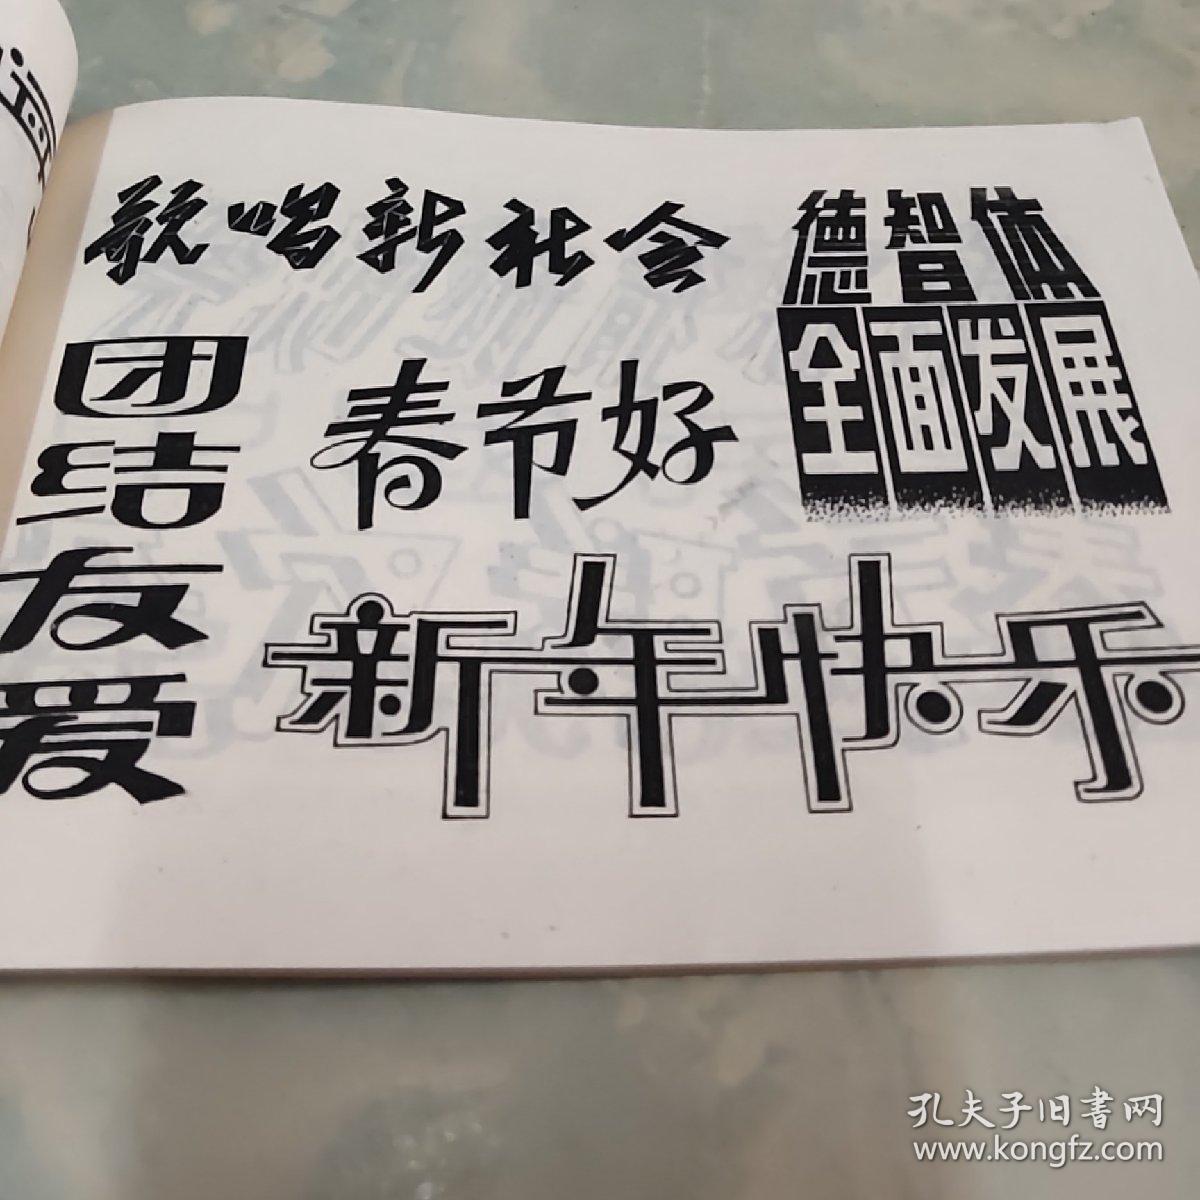 歌唱新社会
德智体
全面发展
团结友爱
春节好
新年快乐
孔夫子旧書网
www.kongfz.com